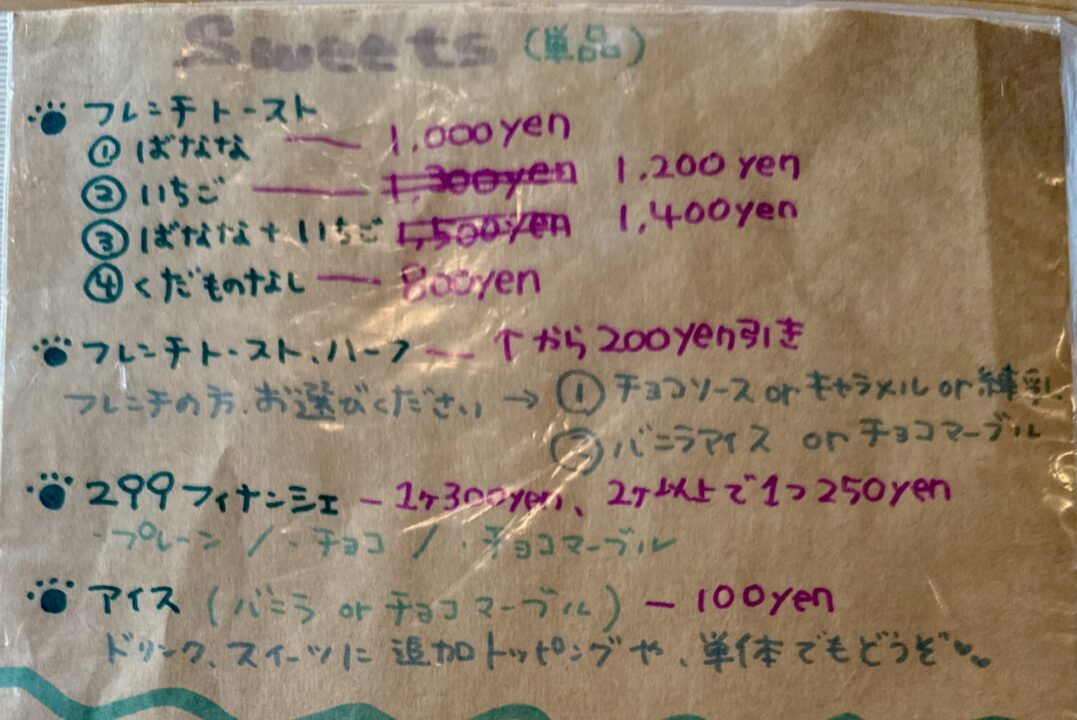 Sweets (単品)
フレンチトースト
① ばなな — 1,000yen
② いちご — 1,300yen 1.200yen
③ ばなな+いちご 1,500yen 1,400yen
④ くだものなし — 800yen
フレンチトースト、ハーフ — ↑から200yen引き
フレンチの方、お選びください → ① チョコソース or キャラメル or 練乳
② バニラアイス or チョコマーブル
299フィナンシェ — 1ヶ300yen、2ヶ以上で1つ250yen
・プレーン / ・チョコ / ・チョコマーブル
アイス (バニラ or チョコマーブル) — 100yen
ドリンク、スイーツに追加トッピングや、単体でもどうぞ